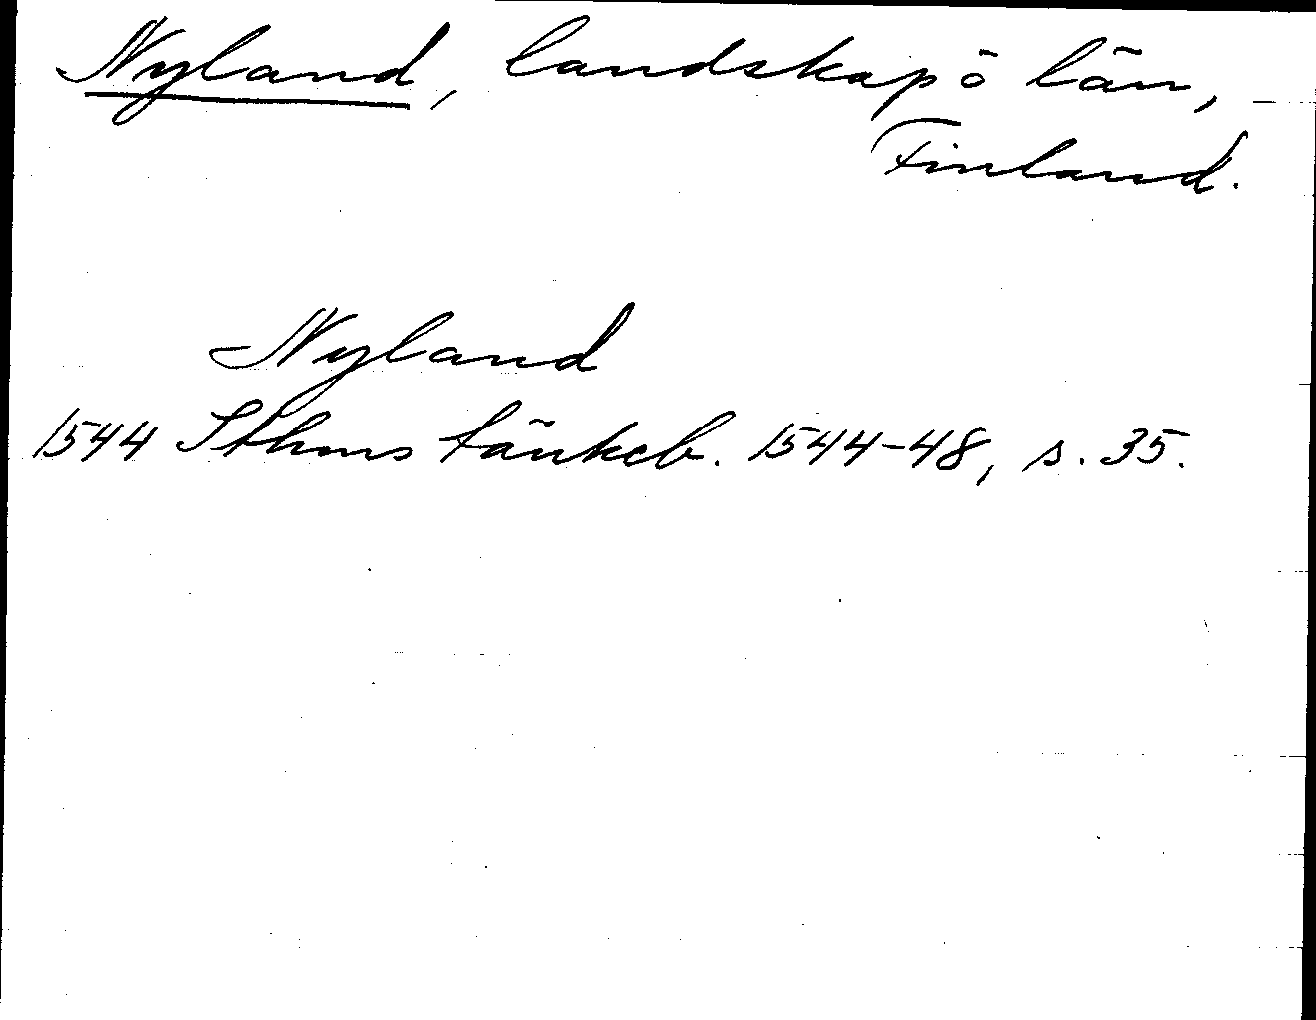 Nyland, landskap ō län,
Finland.
Nyland
1544 Sthms tänkeb. 1544-48, s. 35.